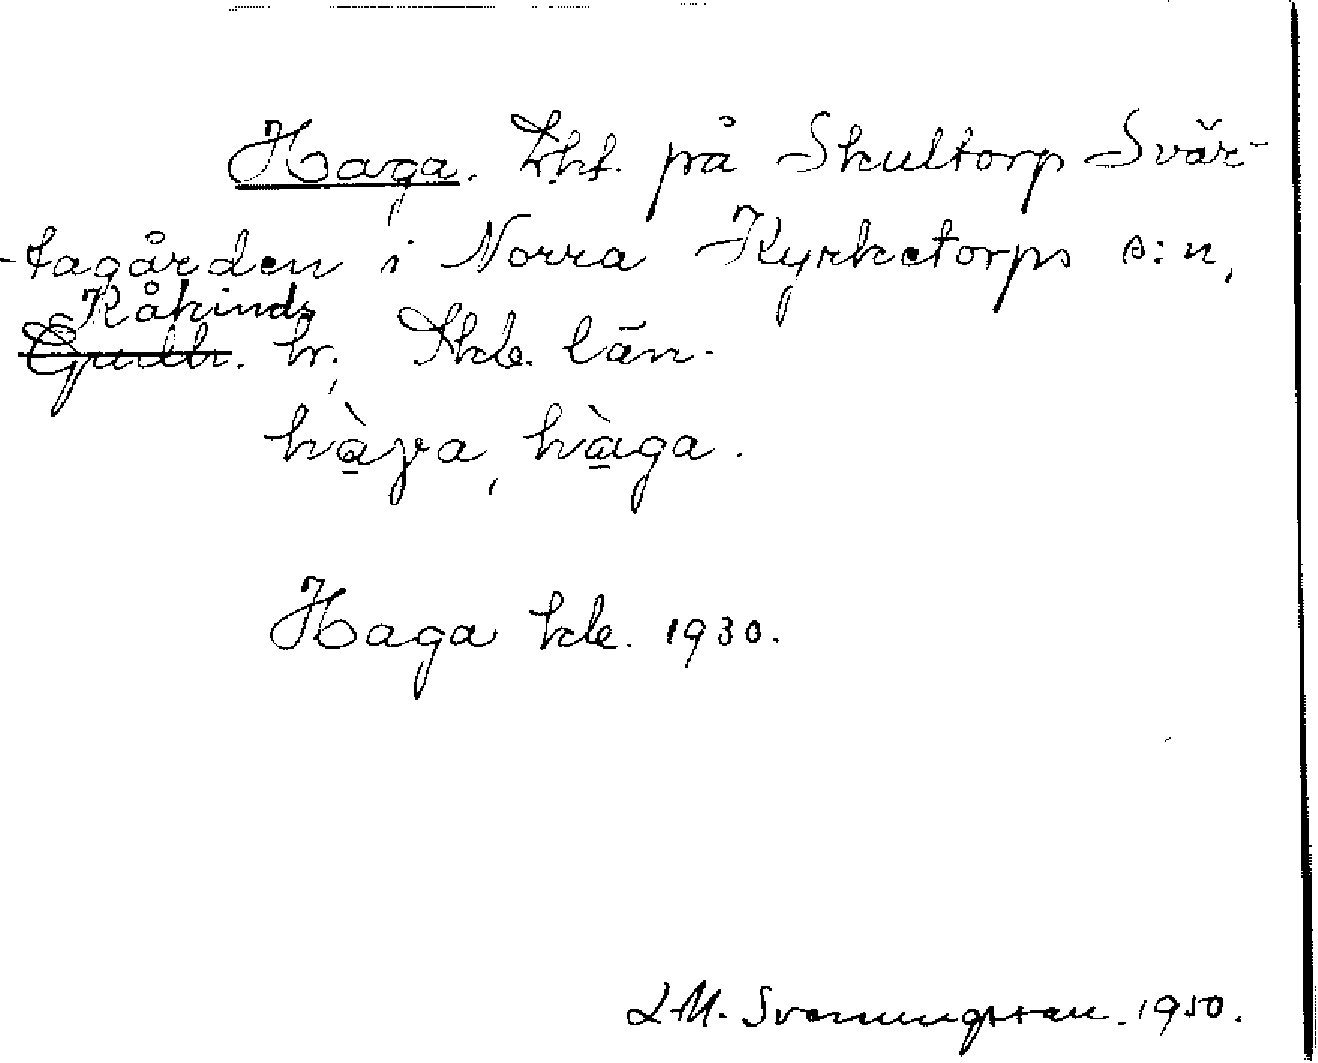 Haga. Lht. på Skultorp Svär-
-tagården i Norra Kyrketorps s:n,
Kåkinds
Gudh. hr, Skb. län.
hàγa, hàga.
Haga hcb. 1930.
L.M. Svenungsson. 1950.